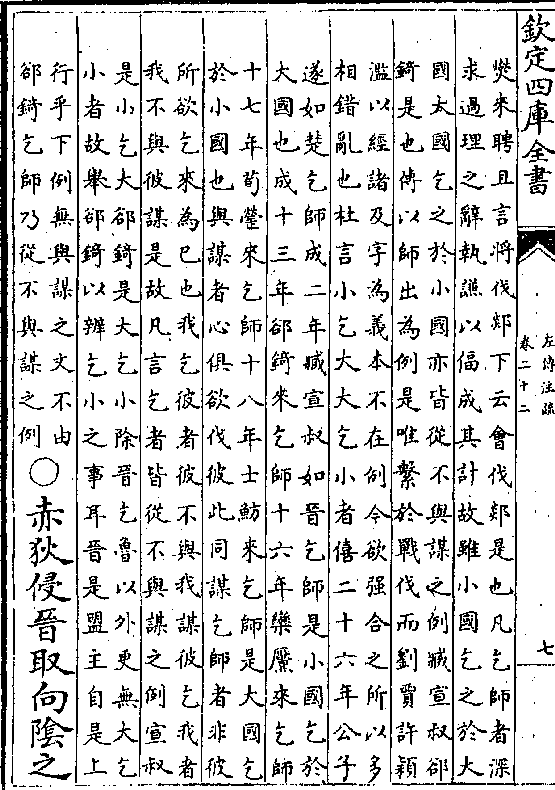 欽定四庫全書
左傳注疏
卷二十二
七
爕來聘且言將伐郯下云會伐郯是也凡乞師者深
求過理之辭執謙以偪成其計故雖小國乞之於大
國大國乞之於小國亦皆從不與謀之例臧宣叔郤
錡是也傳以師出為例是唯繫於戰伐而劉賈許頴
濫以經諸及字為義本不在例今欲强合之所以多
相錯亂也杜言小乞大大乞小者僖二十六年公子
遂如楚乞師成二年臧宣叔如晉乞師是小國乞於
大國也成十三年郤錡来乞師十六年欒黶來乞師
十七年荀罃來乞師十八年士魴来乞師是大國乞
於小國也與謀者心俱欲伐彼此同謀乞師者非彼
所欲乞來為巳也我乞彼者彼不與我謀彼乞我者
我不與彼謀是故凡言乞者皆從不與謀之例宣叔
是小乞大郤錡是大乞小除晉乞魯以外更無大乞
小者故舉郤錡以辨乞小之事耳晉是盟主自是上
行乎下例無與謀之文不由
郤錡乞師乃從不與謀之例
○赤狄侵晉取向隂之